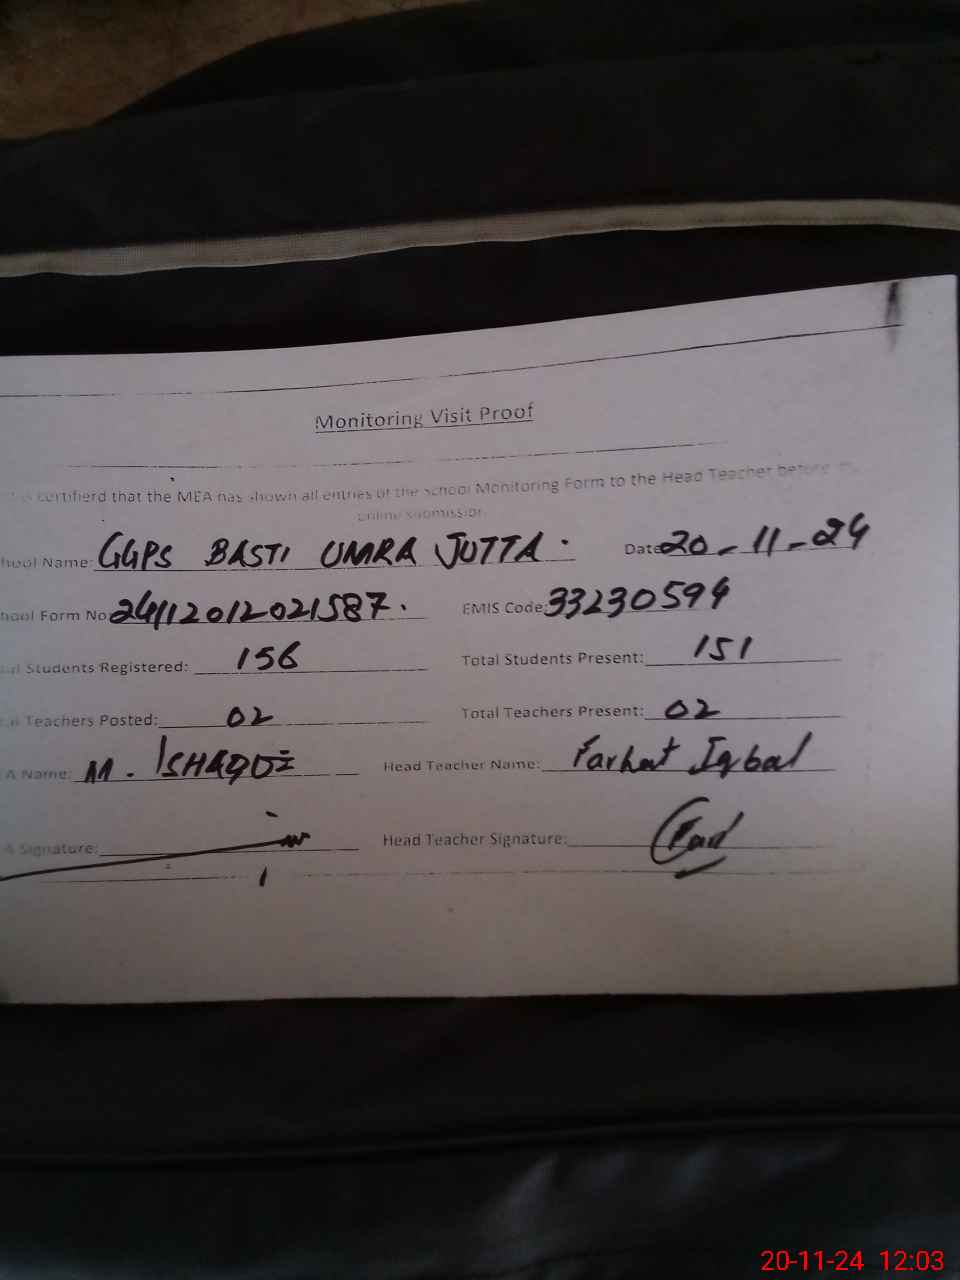 Monitoring Visit Proof
is certifierd that the MEA has shown all entries of the School Monitoring Form to the Head Teacher before
online submission
hool Name: GGPS BASTI UMRA JUTTA. Date 20-11-24
hool Form No 24112012021587. EMIS Code: 33230594
Students Registered: 156 Total Students Present: 151
Teachers Posted: 02 Total Teachers Present: 02
A Name: M. ISHAQUE Head Teacher Name: Farhat Iqbal
A Signature: Head Teacher Signature:
20-11-24 12:03